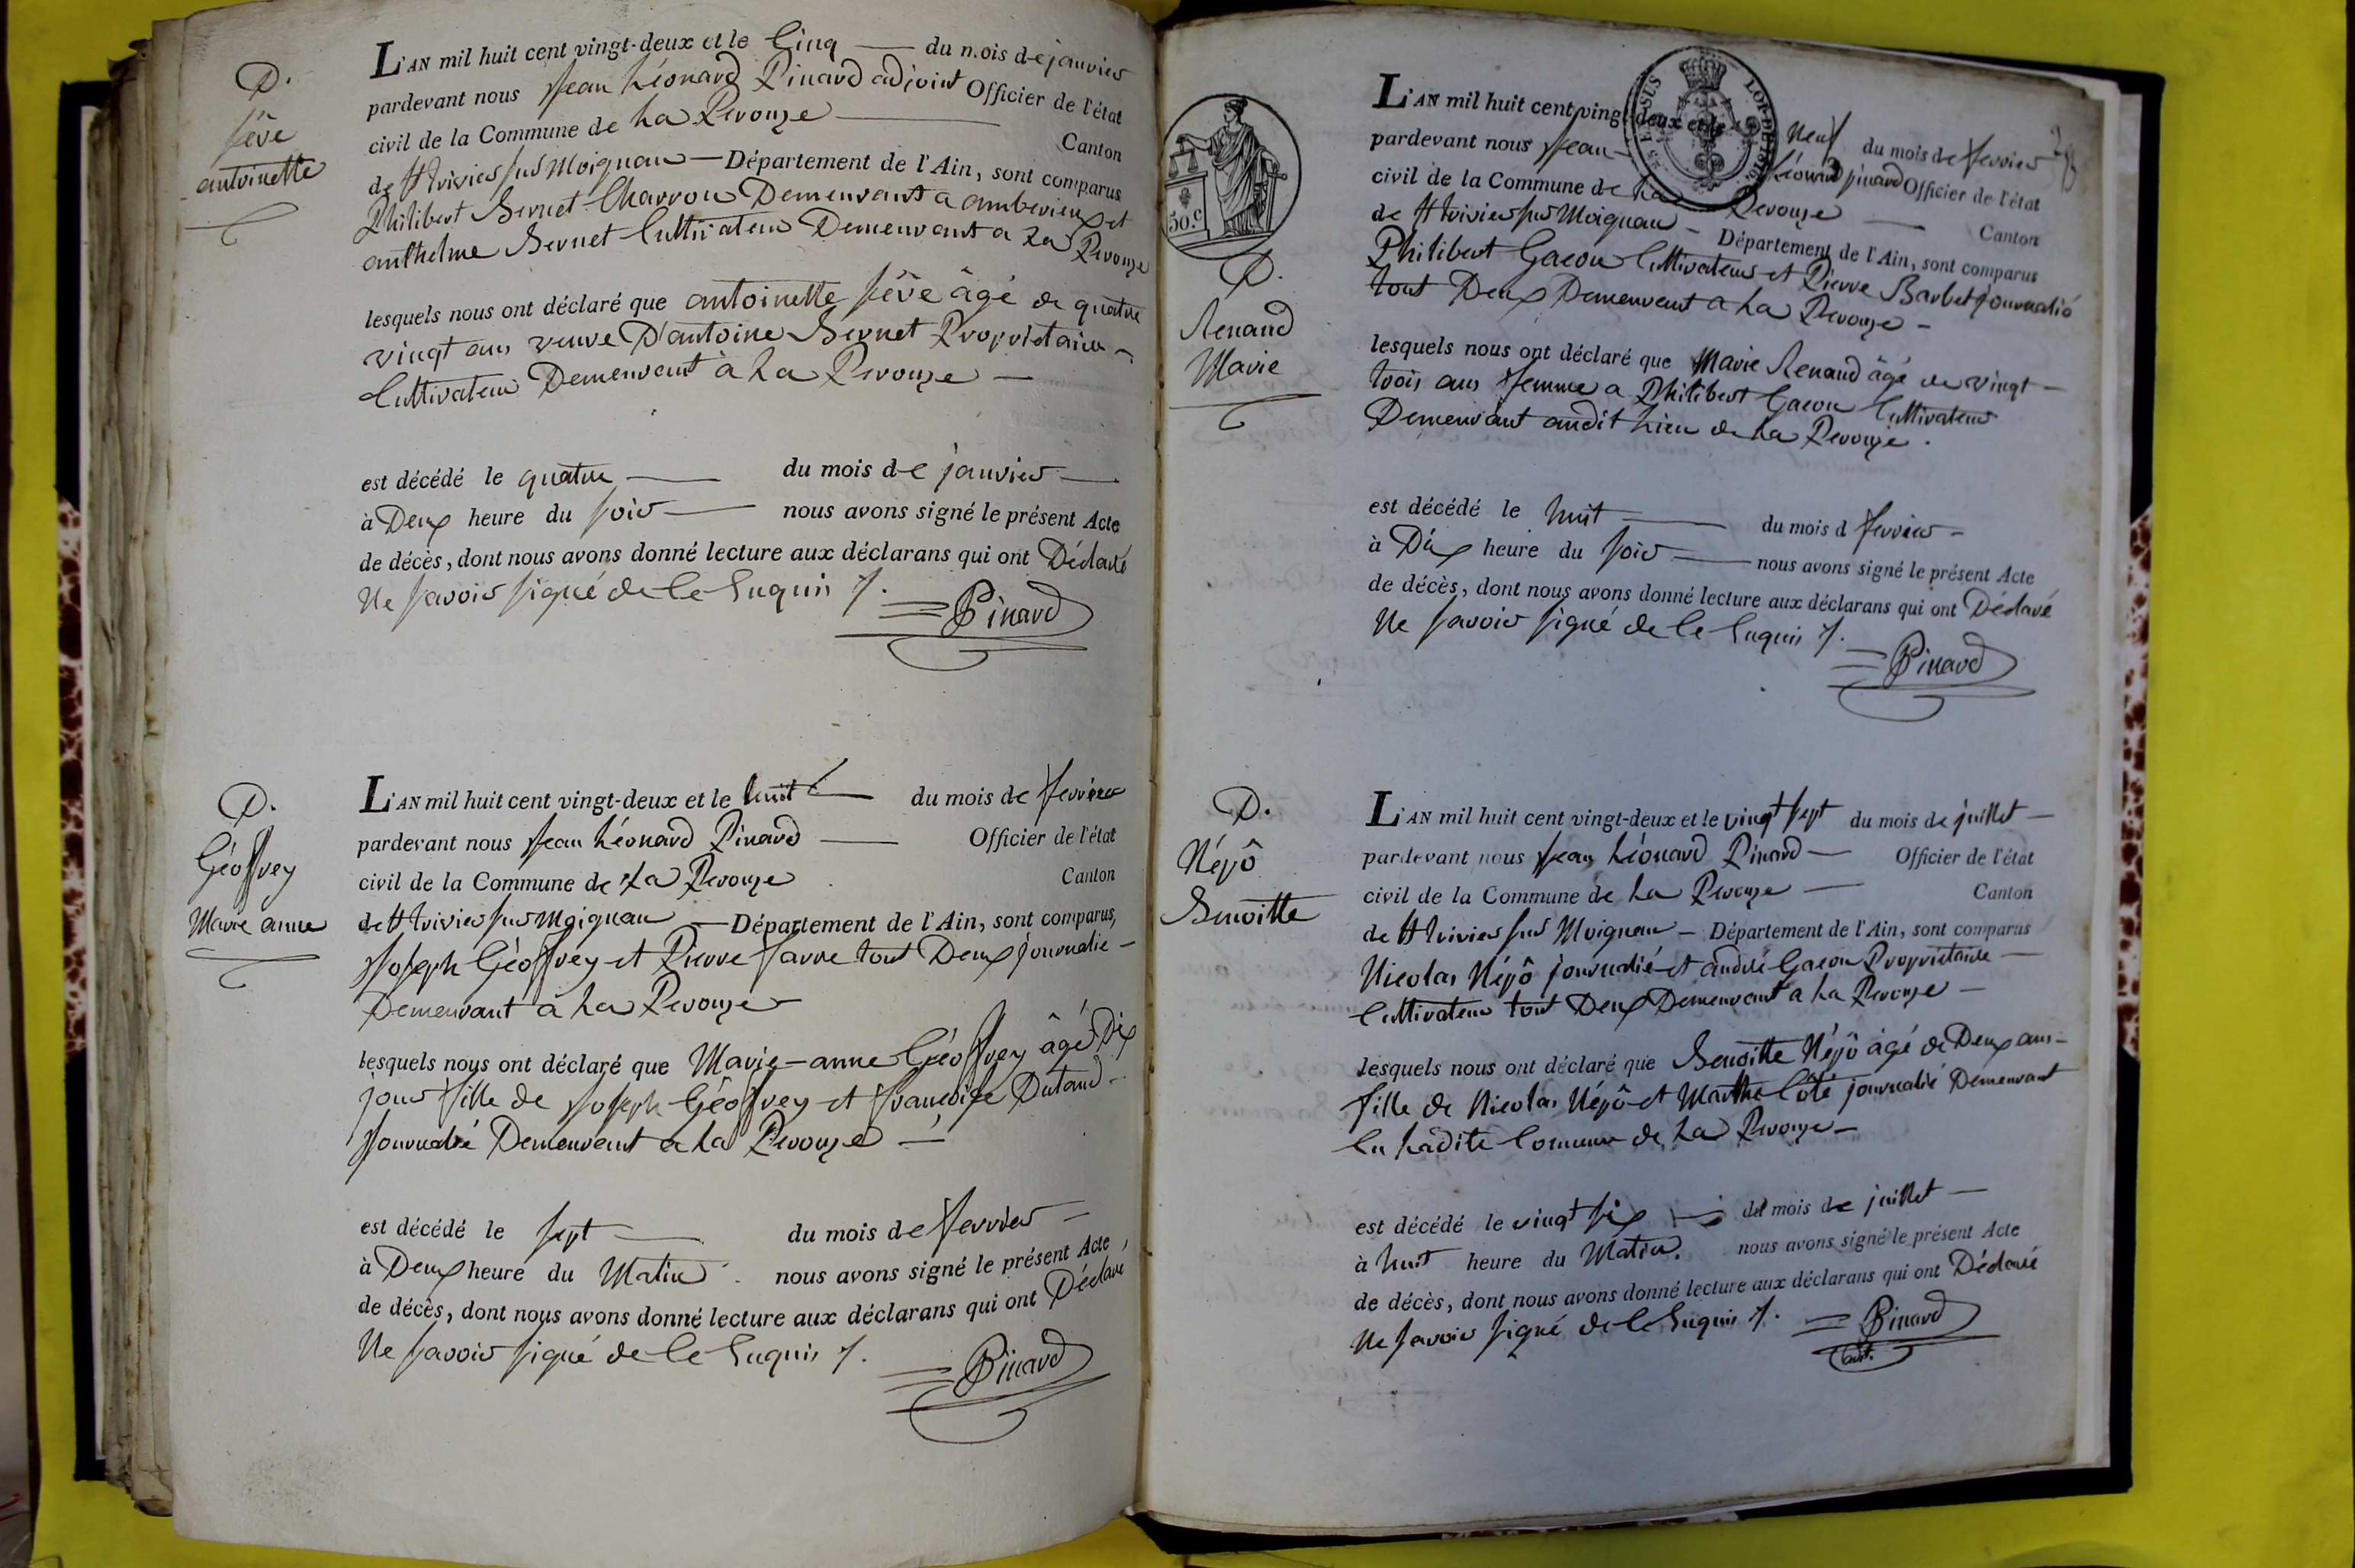 D.
Sêve
antoinette
L'AN mil huit cent vingt-deux et le Cinq du mois de janvier
pardevant nous Jean Léonard Pinard adjoint Officier de l'état
civil de la Commune de La Perouze Canton
de St trivier sur Moignan Département de l'Ain, sont comparus
Philibert Bernet Charron Demeurant a amberieux et
anthelme Bernet Cultivateur Demeurant a La Perouze
lesquels nous ont déclaré que antoinette Sêve âgé de quatre
vingt ans veuve D'antoine Bernet Proprietaire
Cultivateur Demeurant à La Perouze
est décédé le quatre du mois de janvier
à Deux heure du soir nous avons signé le présent Acte
de décès, dont nous avons donné lecture aux déclarans qui ont Déclaré
Ne savoir signé de Ce Enquis
Pinard
D.
Géoffrey
Marie anne
L'AN mil huit cent vingt-deux et le huit du mois de fevrier
pardevant nous Jean Léonard Pinard Officier de l'état
civil de la Commune de La Perouze Canton
de St trivier sur Moignan Département de l'Ain, sont comparus,
Joseph Géoffrey et Pierre favre tout Deux journalié
Demeurant à La Perouze
lesquels nous ont déclaré que Marie-anne Géoffrey âgé Dix
jour fille de Joseph Géoffrey et francoise Dutand
Journalié Demeurant a La Perouze
est décédé le sept du mois de fevrier
à Deux heure du Matin nous avons signé le présent Acte,
de décès, dont nous avons donné lecture aux déclarans qui ont Déclaré
Ne savoir signé de Ce Enquis
Pinard
50.c
D.
Renand
Marie
L'AN mil huit cent vingt-deux et le Neuf du mois de fevrier
pardevant nous Jean Léonard pinard Officier de l'état
civil de la Commune de La Perouze Canton
de St trivier sur Moignan Département de l'Ain, sont comparus
Philibert Gacon Cultivateur et Pierre Barbet journalié
tout Deux Demeurant a La Perouze
lesquels nous ont déclaré que Marie Renand âgé de vingt
trois ans femme a Philibert Gacon Cultivateur
Demeurant audit Lieu de La Perouze.
est décédé le huit du mois d fevrier
à Dix heure du soir nous avons signé le présent Acte
de décès, dont nous avons donné lecture aux déclarans qui ont Déclaré
Ne savoir signé de Ce Enquis
Pinard
D.
Népô
Benoitte
L'AN mil huit cent vingt-deux et le vingt sept du mois de juillet
pardevant nous Jean Léonard Pinard Officier de l'état
civil de la Commune de La Perouze Canton
de St trivier sur Moignan Département de l'Ain, sont comparus
Nicolas Népô journalié et andré Gacon Propriétaire
Cultivateur tout Deux Demeurant a La Perouze
lesquels nous ont déclaré que Benoitte Népô âgé de Deux ans
fille de Nicolas Népô et Marthe Côte journalié Demeurant
En Ladite Commune de La Perouze
est décédé le vingt six du mois de juillet
à huit heure du Matin. nous avons signé le présent Acte
de décès, dont nous avons donné lecture aux déclarans qui ont Déclaré
Ne savoir signé de Ce Enquis
Pinard